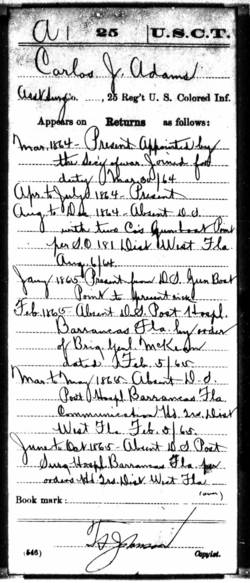 A | 25 | U.S.C.T.
Carlos J. Adams
Asst Surg Co., 25 Reg't U. S. Colored Inf.
Appears on Returns as follows:
Mar. 1864 - Present Appointed by
the Secy of war Joined for
duty Mar. 30/64
Apr. to July 1864 - Present
Aug. to Dec 1864 - Absent D.S.
with two Co's Gunboat Point
per S.O 181. Dist West Fla
Aug. 6/64.
Jany 1865 - Present from D.S. Gun Boat
Point to present
Feb. 1865 - Absent D.S. Post Hospl.
Barrancas Fla. by order
of Brig Genl. McKean
dated Feb. 5/65.
Mar to May 1865 - Absent D.S.
Post Hospl Barrancas Fla
Communication Hd. Qrs. Dist
West Fla Feb. 5/65.
June to Oct 1865 - Absent D.S Post
Surg Hospl Barrancas Fla. per
orders Hd Qrs. Dist West Fla
(over)
Book mark:
(546) Copyist.